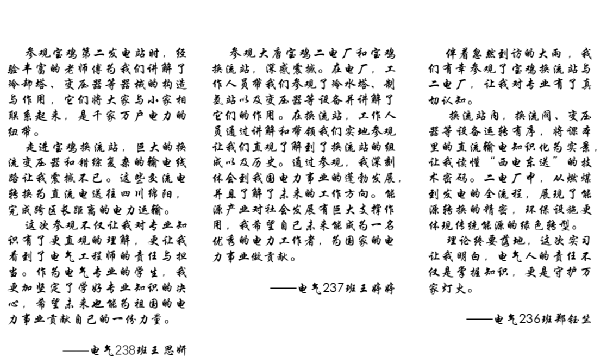 参观宝鸡第二发电站时，经
验丰富的老师傅为我们讲解了
冷却塔、变压器等器械的构造
与作用，它们将大家与小家相
联系起来，是千家万户电力的
纽带。
走进宝鸡换流站，巨大的换
流变压器和错综复杂的输电线
路让我震撼不已。这些交流电
转换为直流电送往四川绵阳，
完成跨区长距离的电力运输。
这次参观不仅让我对专业知
识有了更直观的理解，更让我
看到了电气工程师的责任与担
当。作为电气专业的学生，我
更加坚定了学好专业知识的决
心，希望未来也能为祖国的电
力事业贡献自己的一份力量。
——电气238班王思妍
参观大唐宝鸡二电厂和宝鸡
换流站，深感震撼。在电厂，工
作人员带我们参观了冷水塔、制
氢站以及变压器等设备并讲解了
它们的作用。在换流站，工作人
员通过讲解和带领我们实地参观
让我们直观了解到了换流站的组
成以及历史。通过参观，我深刻
体会到我国电力事业的蓬勃发展，
并且了解了未来的工作方向。能
源产业对社会发展有巨大支撑作
用，我希望自己未来能成为一名
优秀的电力工作者，为国家的电
力事业做贡献。
——电气237班王
伴着忽然到访的大雨，我
们有幸参观了宝鸡换流站与
二电厂，让我对专业有了真
切认知。
换流站内，换流阀、变压
器等设备运转有序，将课本
里的直流输电知识化为实景，
让我读懂“西电东送”的技
术密码。二电厂中，从燃煤
到发电的全流程，展现了能
源转换的精密，环保设施更
体现传统能源的绿色转型。
理论终要落地，这次实习
让我明白，电气人的责任不
仅是掌握知识，更是守护万
家灯火。
——电气236班郑钰莹